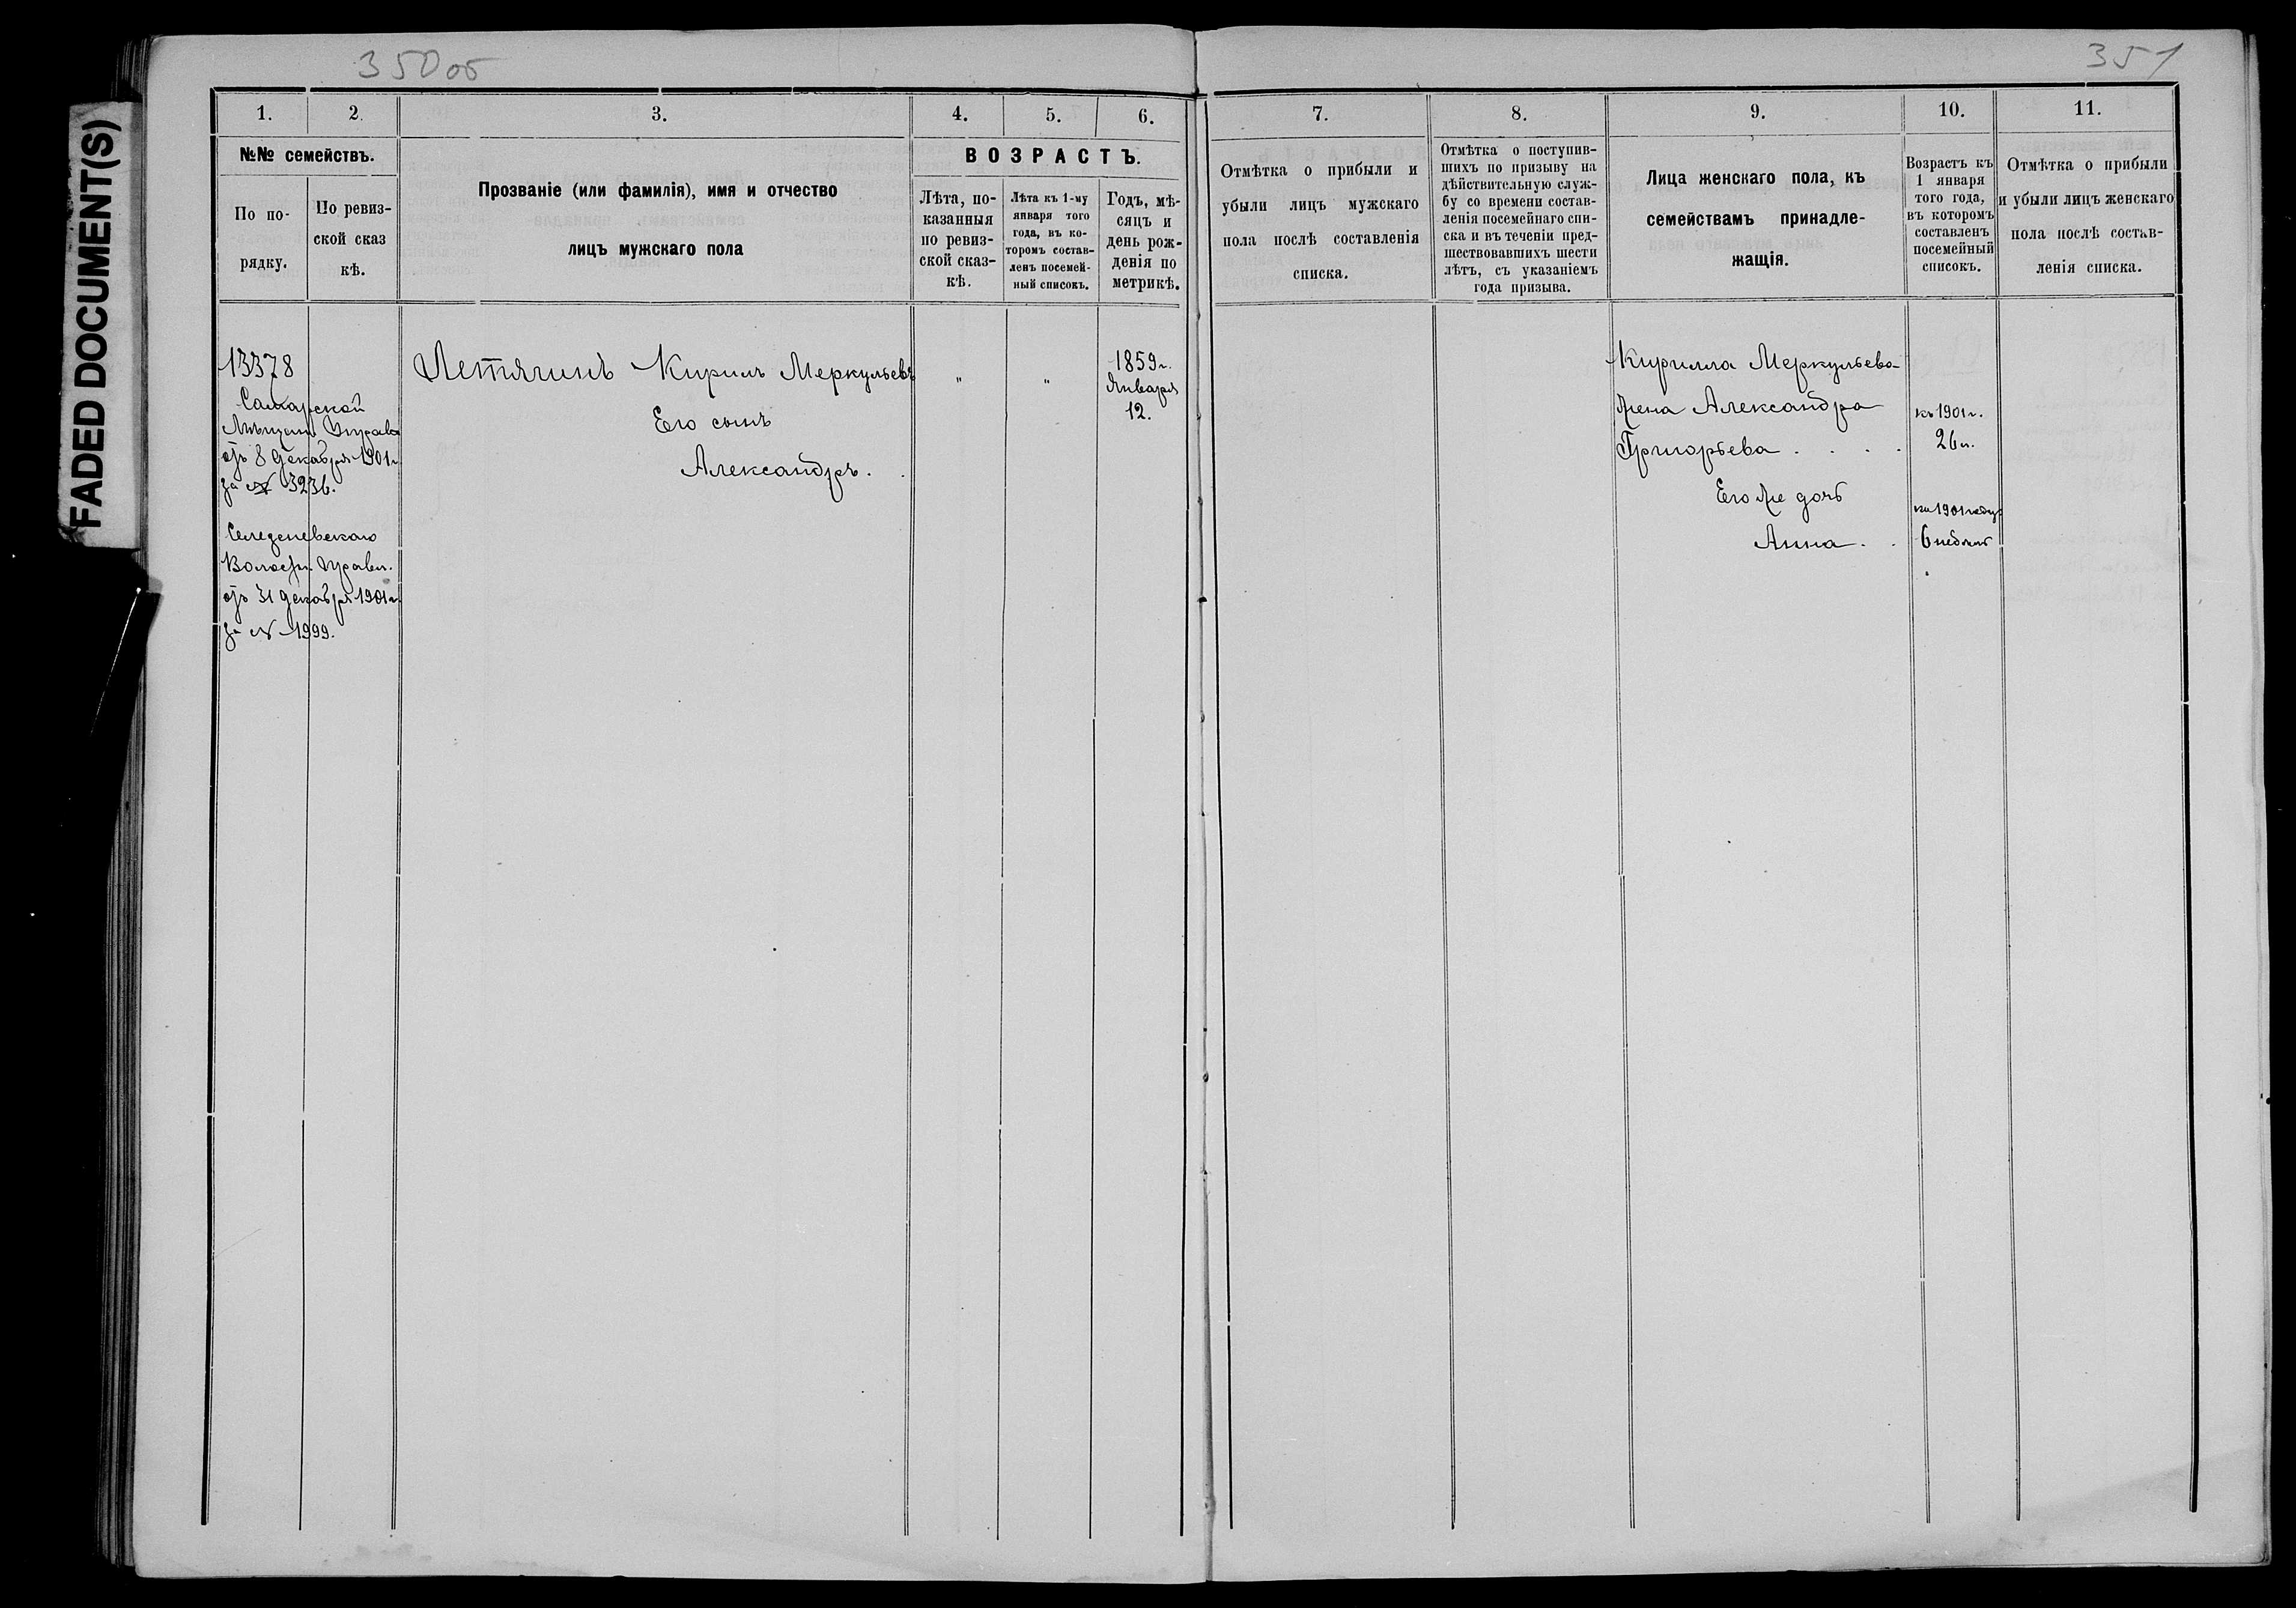 350об
351
FADED DOCUMENT(S)
1.
2.
3.
4.
5.
6.
№№ семействъ.
По по-
рядку.
По ревиз-
ской сказ
кѣ.
Прозваніе (или фамилія), имя и отчество
лицъ мужскаго пола
ВОЗРАСТЪ.
Лѣта, по-
казанныя
по ревиз-
ской сказ-
кѣ.
Лѣта къ 1-му
января того
года, въ ко-
торомъ состав-
ленъ посемей-
ный списокъ.
Годъ, мѣ-
сяцъ и
день рож-
денія по
метрикѣ.
13378
Самарской
Мѣщан. Управы
отъ 8 декабря 1901 г.
за № 3236.
Селезневскаго
Волост. Правл.
отъ 31 декабря 1901 г.
за № 1999.
Летягинъ Кирилъ Меркульевъ
Его сынъ
Александръ.
"
"
1859 г.
Января
12.
7.
8.
9.
10.
11.
Отмѣтка о прибыли и
убыли лицъ мужскаго
пола послѣ составленія
списка.
Отмѣтка о поступив-
шихъ по призыву на
дѣйствительную служ-
бу со времени состав-
ленія посемейнаго спи-
ска и въ теченіи пред-
шествовавшихъ шести
лѣтъ, съ указаніемъ
года призыва.
Лица женскаго пола, къ
семействамъ принадле-
жащія.
Возрастъ къ
1 января
того года,
въ которомъ
составленъ
посемейный
списокъ.
Отмѣтка о прибыли
и убыли лицъ женскаго
пола послѣ состав-
ленія списка.
Кирилла Меркульева
жена Александра
Григорьева . . . .
Его же дочь
Анна . .
къ 1901 г.
26 л.
къ 1901 году
6 недѣль